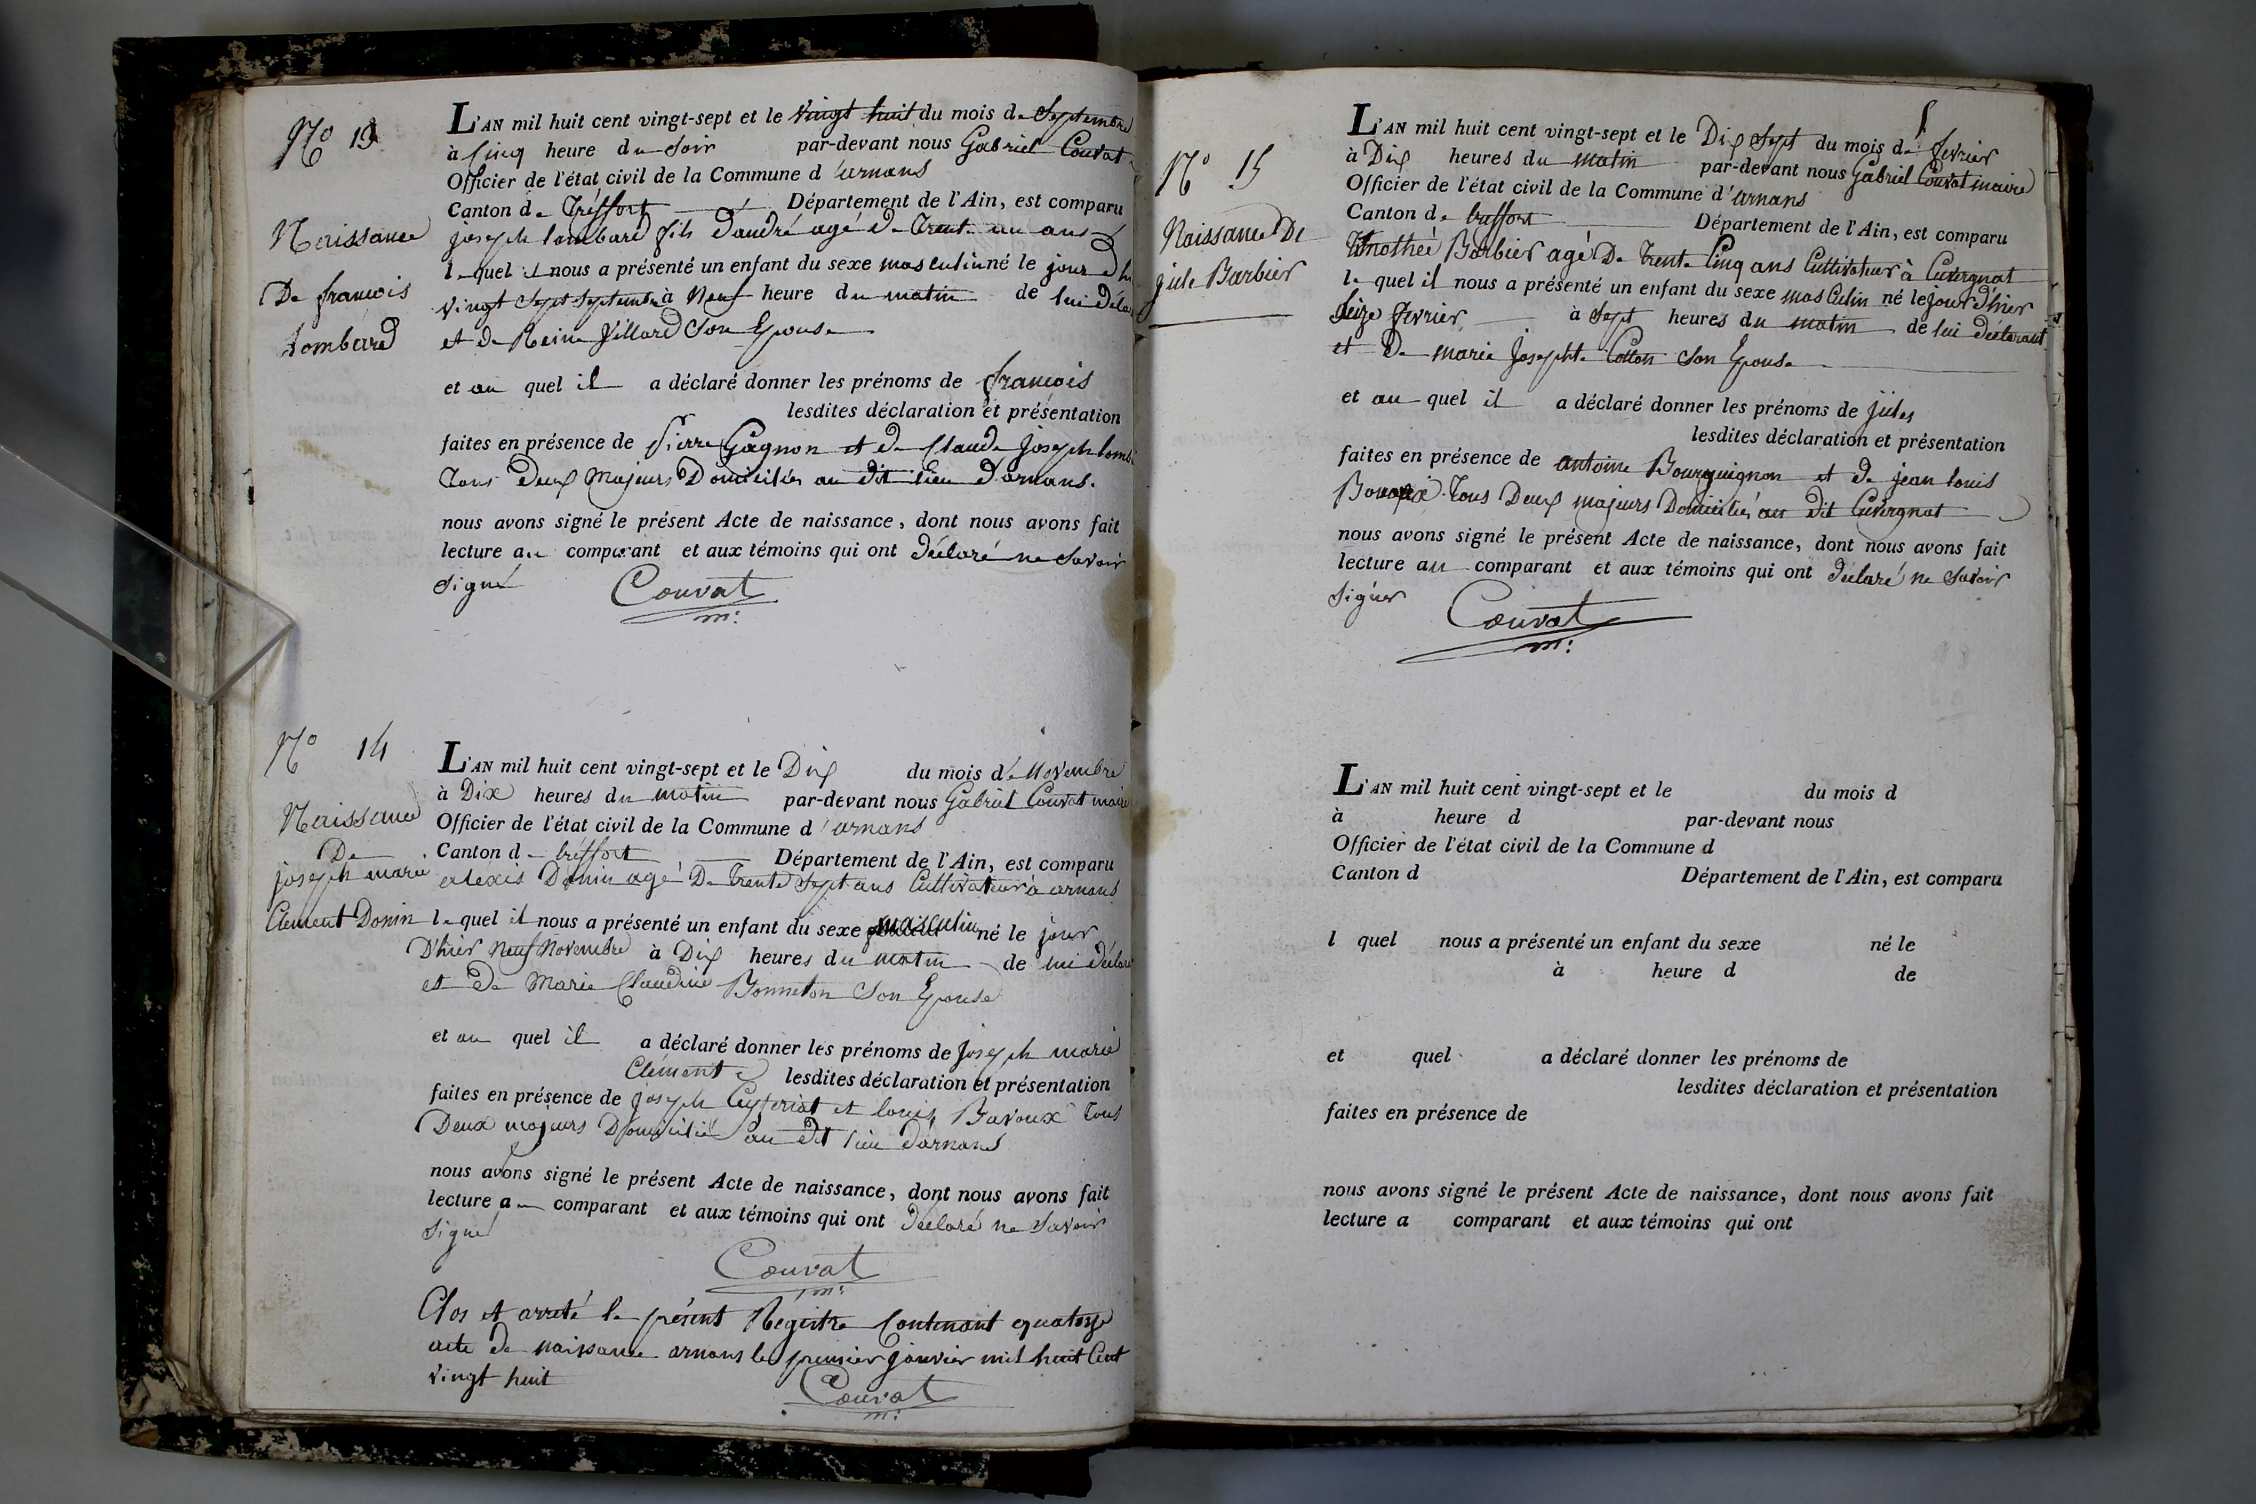 No 13
Naissance
De françois
Lombard
L'AN mil huit cent vingt-sept et le vingt huit du mois de Septembre
à Cinq heure du Soir par-devant nous Gabriel Couvat
Officier de l'état civil de la Commune d'arnans
Canton de Tréffort Département de l'Ain, est comparu
joseph lombard fils d'andré agé de Trente un ans
lequel il nous a présenté un enfant du sexe masculin né le jour d'hi
vingt Sept Septembre à Neuf heure du matin de lui décla
et de Reine Villard Son Epouse
et au quel il a déclaré donner les prénoms de françois
lesdites déclaration et présentation
faites en présence de Pierre Gagnon et de Claude Joseph lomb
Tous Deux Majeurs Domiciliés au dit lieu d'arnans.
nous avons signé le présent Acte de naissance, dont nous avons fait
lecture au comparant et aux témoins qui ont déclaré ne Savoir
Signé
Couvat
m:
No 14
Naissance
De
joseph marie
Clement Donin
L'AN mil huit cent vingt-sept et le Dix du mois de Novembre
à Dix heures du matin par-devant nous Gabriel Couvat maire
Officier de l'état civil de la Commune d'arnans
Canton de tréffort Département de l'Ain, est comparu
alexis Donin agé De Trente Sept ans Cultivateur à arnans
lequel il nous a présenté un enfant du sexe masculin né le jour
D'hier Neuf Novembre à Dix heures du matin de lui déclar
et De Marie Claudine Bonneton Son Epouse
et au quel il a déclaré donner les prénoms de Joseph marie
Clément lesdites déclaration et présentation
faites en présence de joseph Ceyzeriat et louis Bavoux Tous
Deux majeurs Domicilié au dit lieu d'arnans
nous avons signé le présent Acte de naissance, dont nous avons fait
lecture au comparant et aux témoins qui ont déclaré ne Savoir
Signé
Couvat
m:
Clos et arreté le présent Régistre Contenant quatorze
acte de naissance arnans le premier janvier mil huit Cent
vingt huit
Couvat
m:
No 15
Naissance De
jule Barbier
L'AN mil huit cent vingt-sept et le Dix Sept du mois de fevrier
à Dix heures du matin par-devant nous Gabriel Couvat maire
Officier de l'état civil de la Commune d'arnans
Canton de treffort Département de l'Ain, est comparu
Timothée Barbier agé De Trente Cinq ans Cultivateur à Cuvergnat
lequel il nous a présenté un enfant du sexe masculin né le jour d'hier
Seize fevrier à Sept heures du matin de lui déclarant
et De marie Josephte Cotton Son Epouse
et au quel il a déclaré donner les prénoms de jules
lesdites déclaration et présentation
faites en présence de antoine Bourguignon et de jean louis
Tous Deux majeurs Domiciliés au dit Cuvergnat
nous avons signé le présent Acte de naissance, dont nous avons fait
lecture au comparant et aux témoins qui ont déclaré ne Savoir
Signer
Couvat
m:
L'AN mil huit cent vingt-sept et le du mois d
à heure d par-devant nous
Officier de l'état civil de la Commune d
Canton d Département de l'Ain, est comparu
l quel nous a présenté un enfant du sexe né le
à heure d de
et quel a déclaré donner les prénoms de
lesdites déclaration et présentation
faites en présence de
nous avons signé le présent Acte de naissance, dont nous avons fait
lecture a comparant et aux témoins qui ont